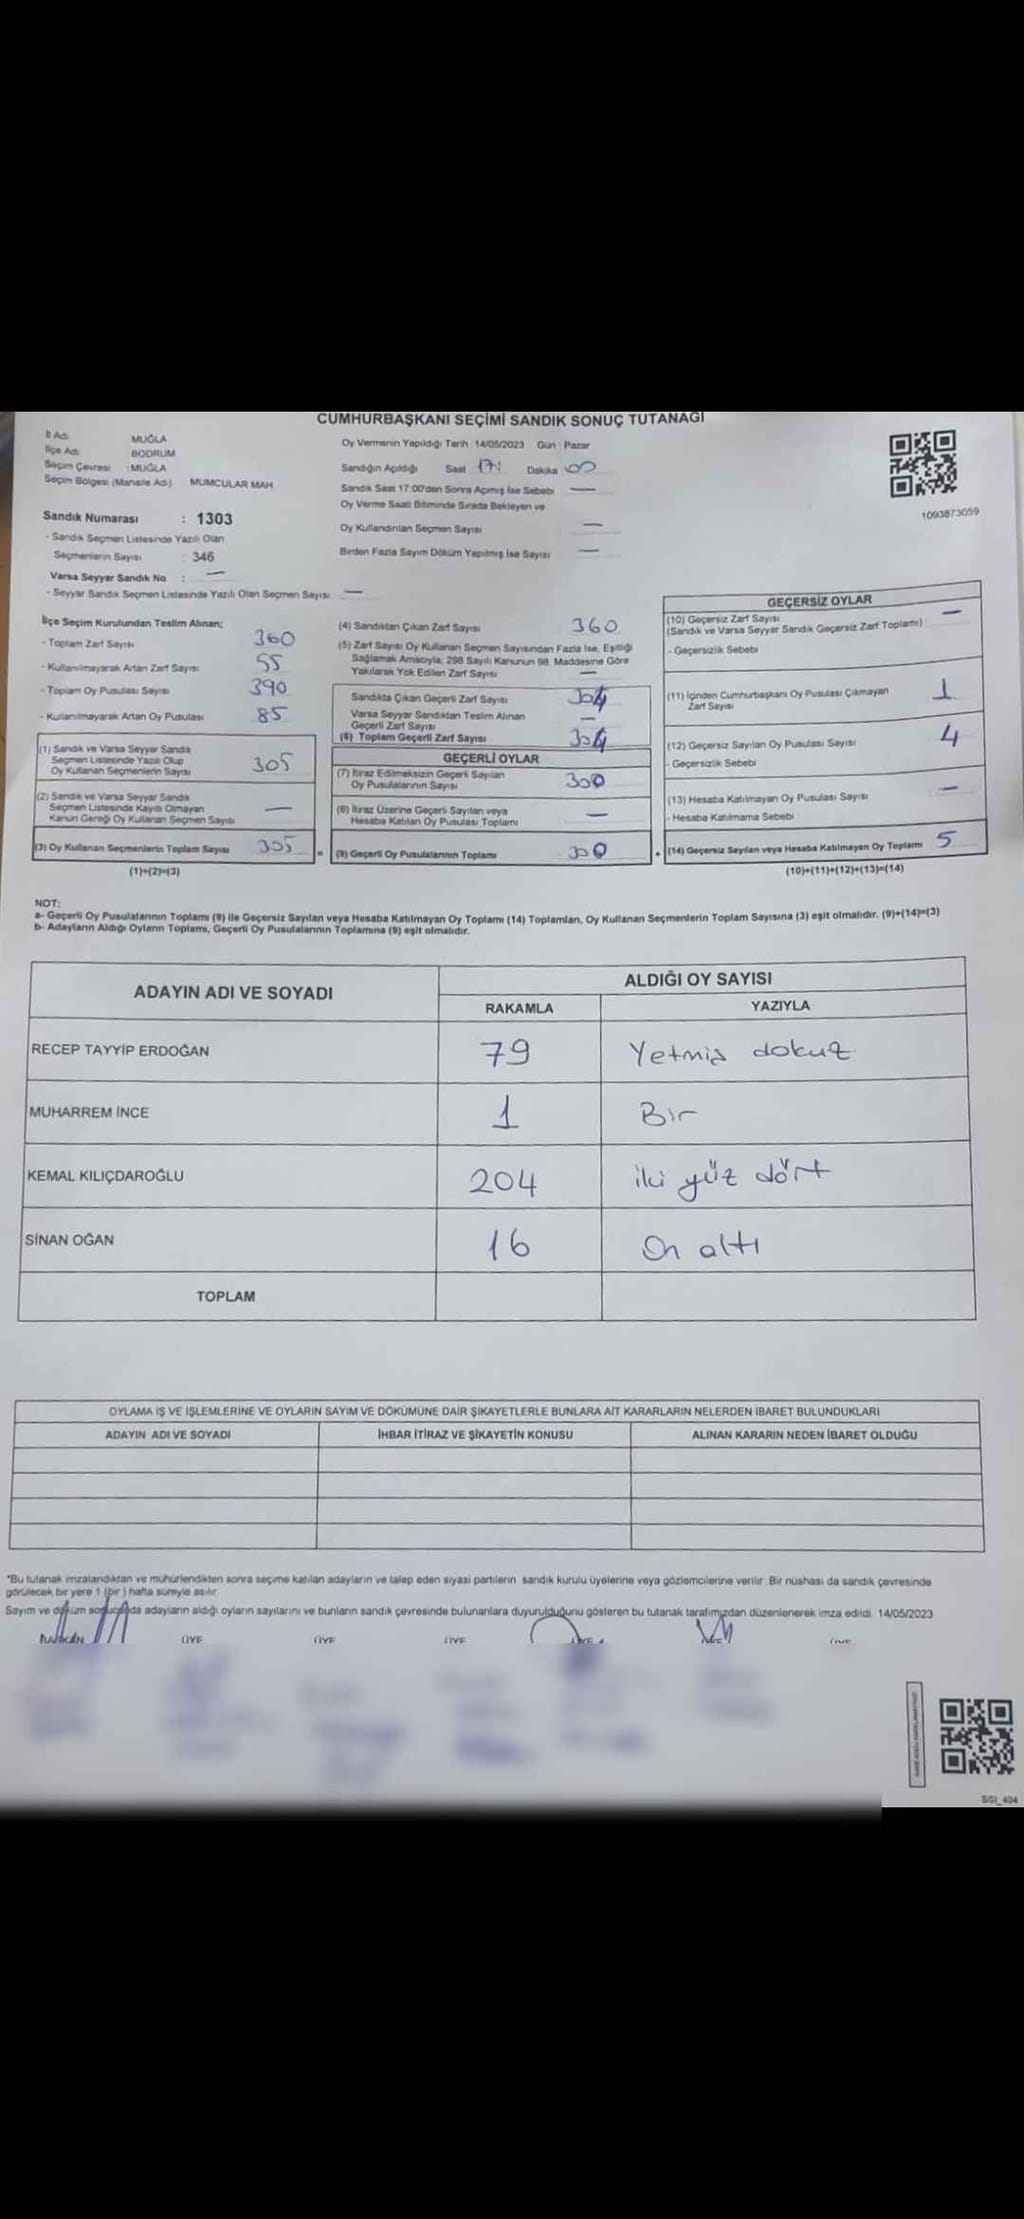 CUMHURBAŞKANI SEÇİMİ SANDIK SONUÇ TUTANAĞI
İl Adı MUĞLA
İlçe Adı BODRUM
Seçim Çevresi : MUĞLA
Seçim Bölgesi (Mahalle Adı) MUMCULAR MAH.
Sandık Numarası : 1303
- Sandık Seçmen Listesinde Yazılı Olan
Seçmenlerin Sayısı : 346
Varsa Seyyar Sandık No : —
- Seyyar Sandık Seçmen Listesinde Yazılı Olan Seçmen Sayısı —
Oy Vermenin Yapıldığı Tarih : 14/05/2023 Gün : Pazar
Sandığın Açıldığı Saat 17: Dakika 00
Sandık Saat 17:00'den Sonra Açımış İse Sebebi —
Oy Verme Saati Bitiminde Sırada Bekleyen ve
Oy Kullandırılan Seçmen Sayısı —
Birden Fazla Sayım Döküm Yapılmış İse Sayısı —
1093873059
İlçe Seçim Kurulundan Teslim Alınan;
- Toplam Zarf Sayısı 360
- Kullanılmayarak Artan Zarf Sayısı 55
- Toplam Oy Pusulası Sayısı 390
- Kullanılmayarak Artan Oy Pusulası 85
(1) Sandık ve Varsa Seyyar Sandık
Seçmen Listesinde Yazılı Olup
Oy Kullanan Seçmenlerin Sayısı 305
(2) Sandık ve Varsa Seyyar Sandık
Seçmen Listesinde Kayıtlı Olmayan
Kanun Gereği Oy Kullanan Seçmen Sayısı —
(3) Oy Kullanan Seçmenlerin Toplam Sayısı 305 =
(1)+(2)=(3)
(4) Sandıktan Çıkan Zarf Sayısı 360
(5) Zarf Sayısı Oy Kullanan Seçmen Sayısından Fazla İse, Eşitliği
Sağlamak Amacıyla; 298 Sayılı Kanunun 98. Maddesine Göre
Yakılarak Yok Edilen Zarf Sayısı —
Sandıkta Çıkan Geçerli Zarf Sayısı 304
Varsa Seyyar Sandıktan Teslim Alınan
Geçerli Zarf Sayısı —
(6) Toplam Geçerli Zarf Sayısı 304
GEÇERLİ OYLAR
(7) İtiraz Edilmeksizin Geçerli Sayılan
Oy Pusulalarının Sayısı 300
(8) İtiraz Üzerine Geçerli Sayılan veya
Hesaba Katılan Oy Pusulası Toplamı —
(9) Geçerli Oy Pusulalarının Toplamı 300 +
GEÇERSİZ OYLAR
(10) Geçersiz Zarf Sayısı —
(Sandık ve Varsa Seyyar Sandık Geçersiz Zarf Toplamı)
- Geçersizlik Sebebi
(11) İçinden Cumhurbaşkanı Oy Pusulası Çıkmayan 1
Zarf Sayısı
(12) Geçersiz Sayılan Oy Pusulası Sayısı 4
- Geçersizlik Sebebi
(13) Hesaba Katılmayan Oy Pusulası Sayısı —
- Hesaba Katılmama Sebebi
(14) Geçersiz Sayılan veya Hesaba Katılmayan Oy Toplamı 5
(10)+(11)+(12)+(13)=(14)
NOT:
a- Geçerli Oy Pusulalarının Toplamı (9) ile Geçersiz Sayılan veya Hesaba Katılmayan Oy Toplamı (14) Toplamları, Oy Kullanan Seçmenlerin Toplam Sayısına (3) eşit olmalıdır. (9)+(14)=(3)
b- Adayların Aldığı Oyların Toplamı, Geçerli Oy Pusulalarının Toplamına (9) eşit olmalıdır.
ADAYIN ADI VE SOYADI ALDIĞI OY SAYISI
RAKAMLA YAZIYLA
RECEP TAYYİP ERDOĞAN 79 Yetmiş dokuz
MUHARREM İNCE 1 Bir
KEMAL KILIÇDAROĞLU 204 iki yüz dört
SİNAN OĞAN 16 On altı
TOPLAM
OYLAMA İŞ VE İŞLEMLERİNE VE OYLARIN SAYIM VE DÖKÜMÜNE DAİR ŞİKAYETLERLE BUNLARA AİT KARARLARIN NELERDEN İBARET BULUNDUKLARI
ADAYIN ADI VE SOYADI İHBAR İTİRAZ VE ŞİKAYETİN KONUSU ALINAN KARARIN NEDEN İBARET OLDUĞU
*Bu tutanak imzalandıktan ve mühürlendikten sonra seçime katılan adayların ve talep eden siyasi partilerin sandık kurulu üyelerine veya gözlemcilerine verilir. Bir nüshası da sandık çevresinde
görülecek bir yere 1 (bir) hafta süreyle asılır.
Sayım ve döküm sonucunda adayların aldığı oyların sayılarını ve bunların sandık çevresinde bulunanlara duyurulduğunu gösteren bu tutanak tarafımızdan düzenlenerek imza edildi. 14/05/2023
BAŞKAN ÜYE ÜYE ÜYE ÜYE ÜYE ÜYE
SSI_404